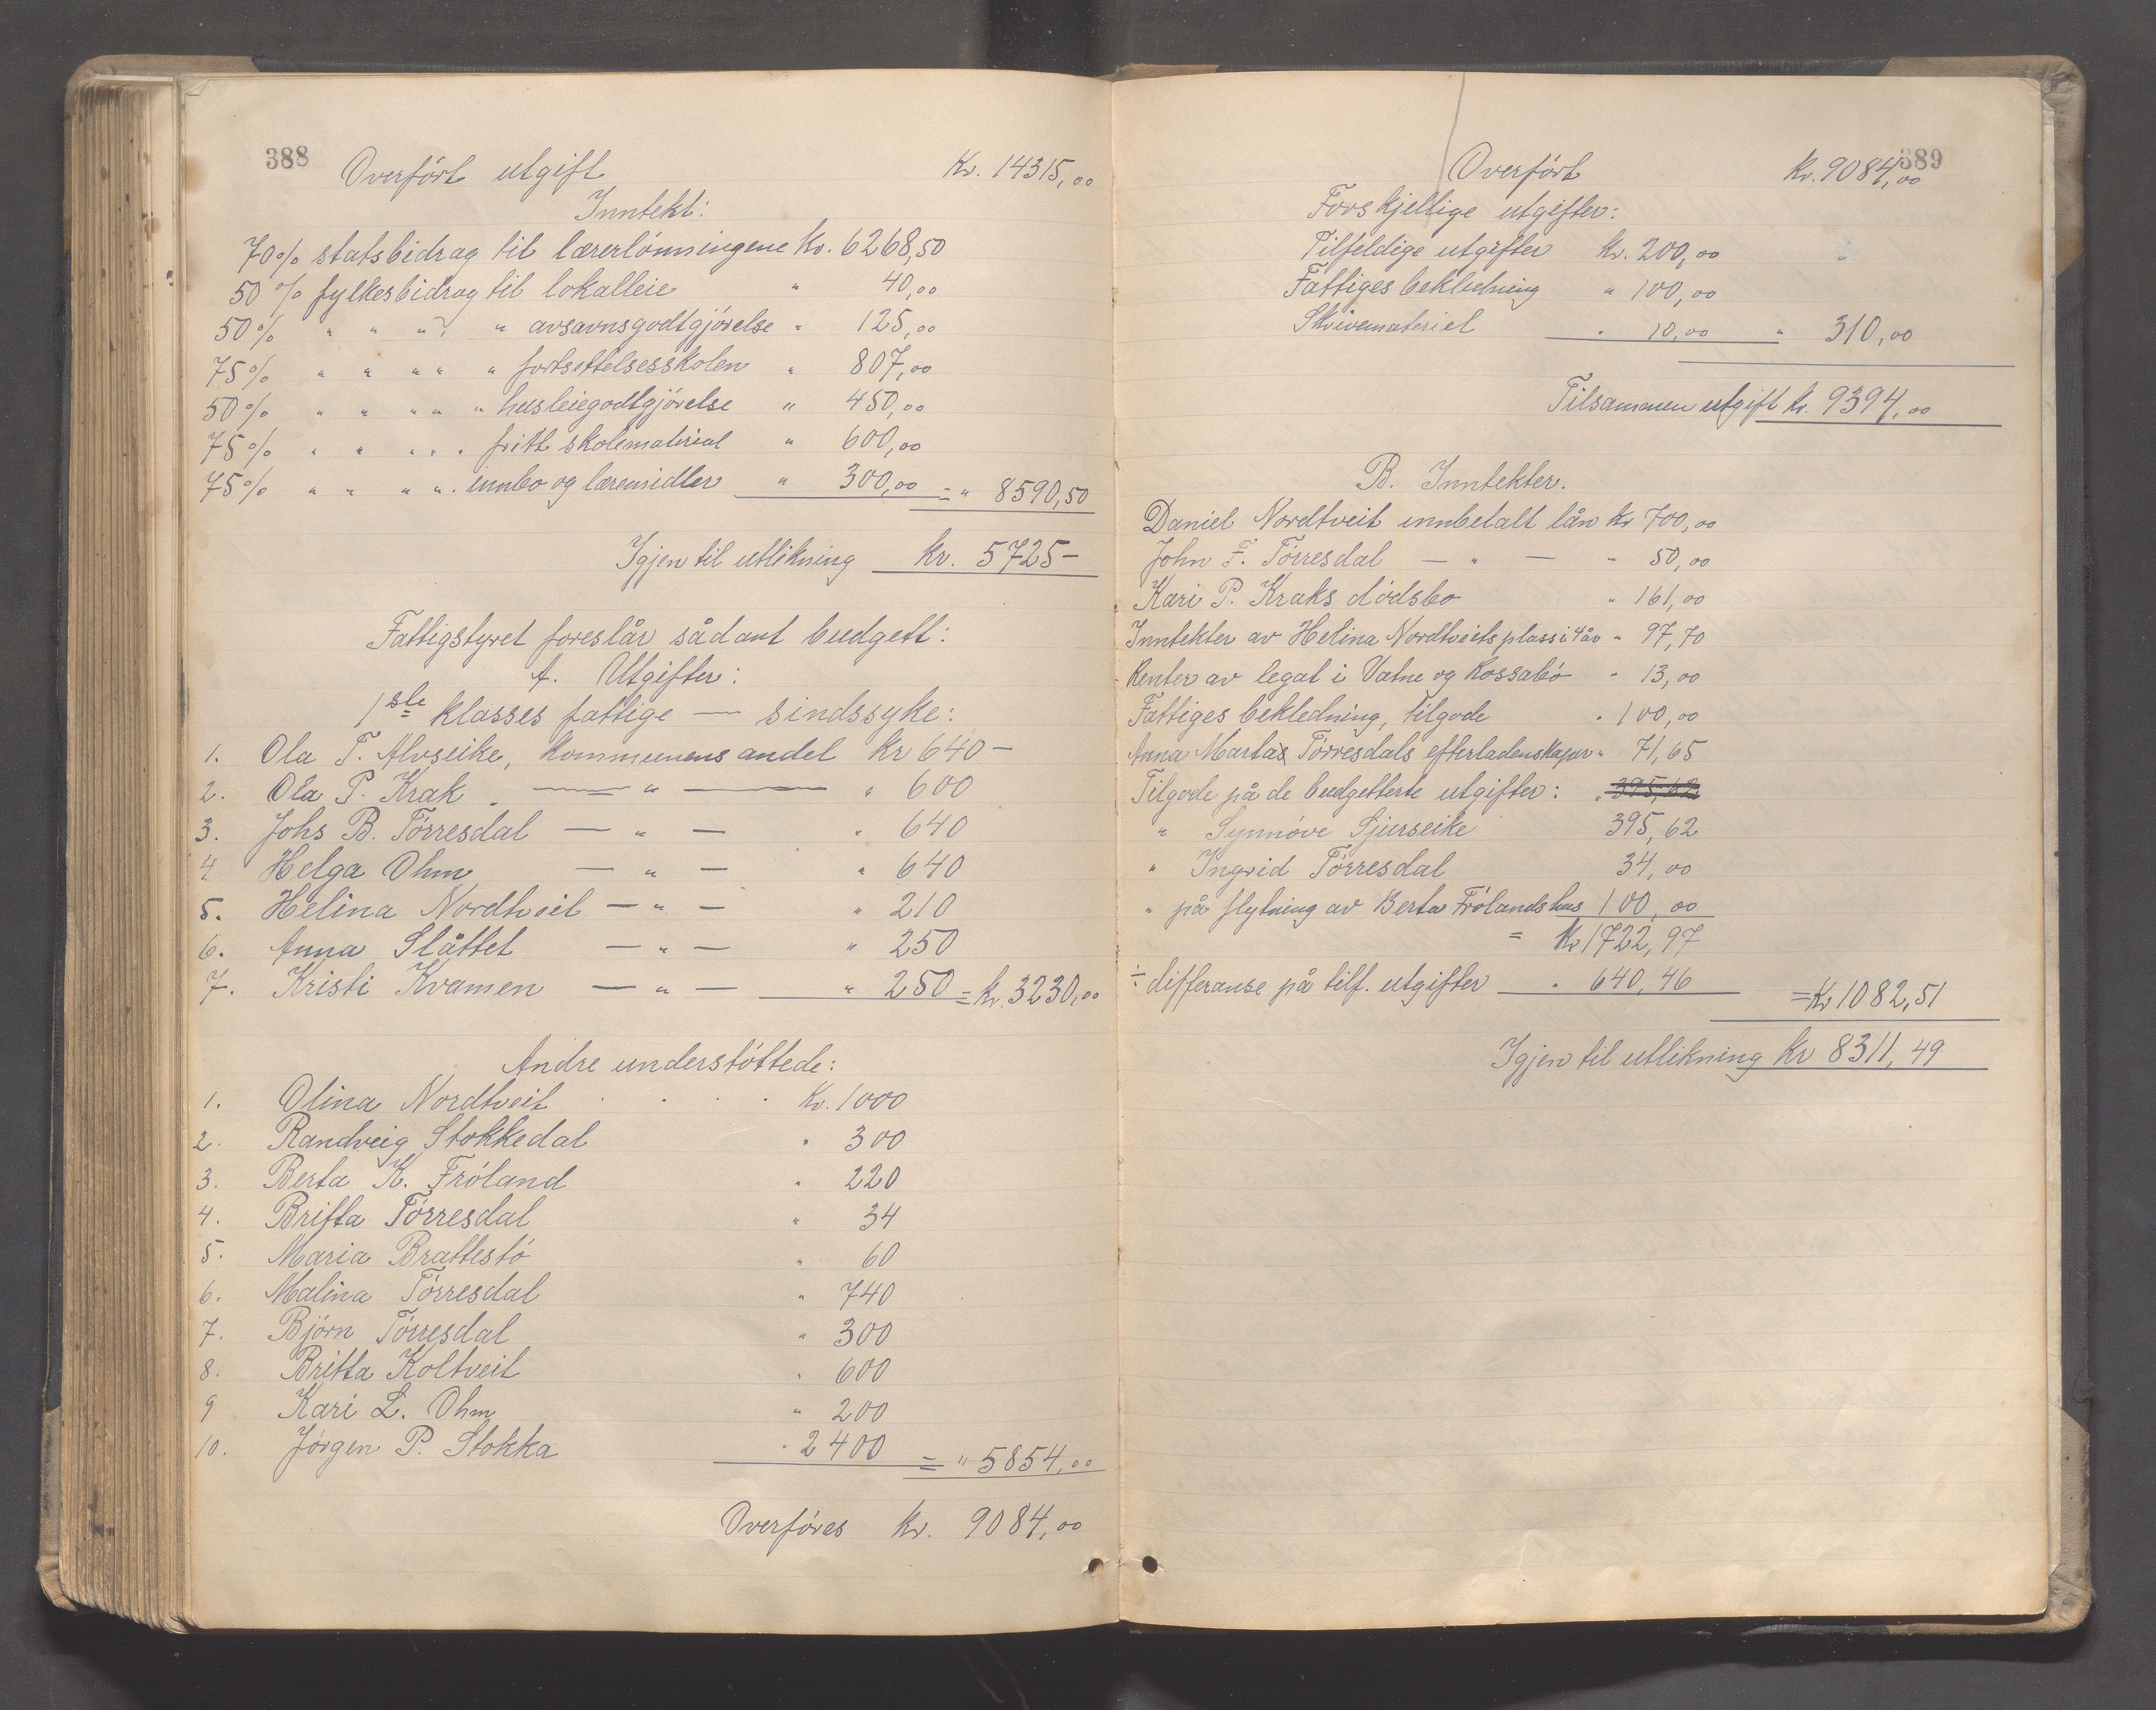 388
Overført utgift Kr. 14315,00
Inntekt:
70% statsbidrag til lærerlønningene Kr. 6268,50
50% fylkesbidrag til lokalleie " 40,00
50% " " " " avsavnsgodtgjørelse " 125,00
75% " " " " fortsettelsesskolen " 807,00
50% " " " " husleiegodtgjørelse " 450,00
75% " " " " fritt skolemateriel " 600,00
75% " " " " innbo og læremidler " 300,00 = " 8590,50
Igjen til utlikning kr. 5725-
Fattigstyret foreslår sådant budgett:
A. Utgifter:
1ste klasses fattige — sindssyke:
1. Ola T. Alvseike, kommunens andel Kr 640-
2. Ola P. Krak — " — " 600
3. Johs B. Tørresdal — " — " 640
4 Helga Ohm — " — " 640
5. Helina Nordtveit — " — " 210
6. Anna Slåttet — " — " 250
7. Kristi Kvamen — " — " 250 = kr. 3230,00
Andre understøttede:
1. Olina Nordtveit . . . . Kr. 1000
2. Randveig Stokkedal " 300
3. Berta K. Frøland " 220
4. Britta Tørresdal " 34
5. Maria Brattestø " 60
6. Malina Tørresdal " 740
7. Bjørn Tørresdal " 300
8. Britta Koltveit " 600
9 Kari L. Ohm " 200
10. Jørgen P. Stokka " 2400 = " 5854,00
Overføres kr. 9084,00
389
Overført kr. 9084,00
Forskjellige utgifter:
Tilfeldige utgifter kr. 200,00
Fattiges bekledning " 100,00
Skrivemateriel " 10,00 " 310,00
Tilsammen utgift kr. 9394,00
B. Inntekter.
Daniel Nordtveit innbetalt lån kr 700,00
John F. Tørresdal — " — " 50,00
Kari P. Kraks dødsbo " 161,00
Inntekter av Helina Nordtveits plass i 4 år " 97,70
Renter av legat i Vatne og Rossabø " 13,00
Fattiges bekledning, tilgode " 100,00
Anna Martas Tørresdals efterladenskaper " 71,65
Tilgode på de budgetterte utgifter: " 395,62
" Synnøve Sjurseike 395,62
" Ingrid Tørresdal 34,00
" på flytning av Berta Frølands hus 100,00
= Kr 1722,97
÷ differanse på tilf. utgifter " 640,46 = Kr 1082,51
Igjen til utlikning kr 8311,49